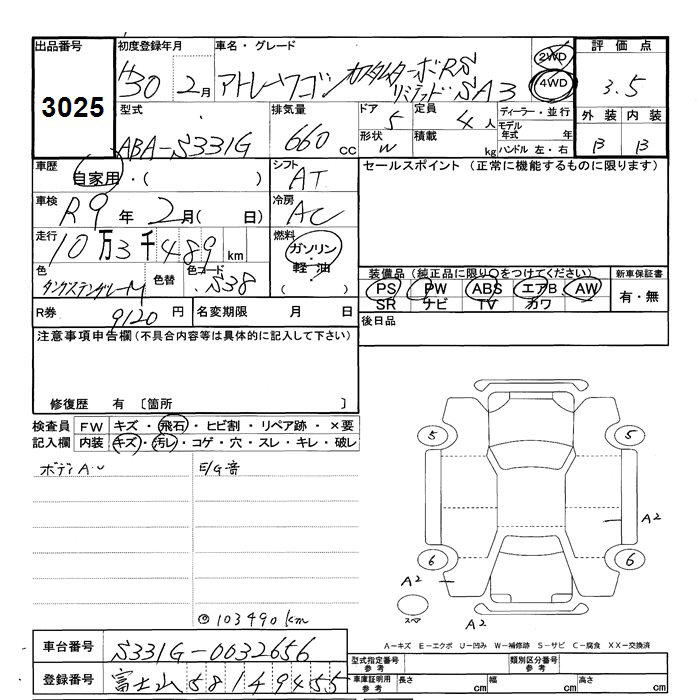 出品番号 初度登録年月 車名・グレード 2WD 4WD 評価点
3025 H30 2月 アトレーワゴン カスタムターボRS リミテッドSAⅢ 3.5
型式 排気量 ドア 定員 ディーラー・並行 外装 内装
ABA-S331G 660cc 5 4人 モデル年式 年 B B
形状 W 積載 kg ハンドル 左・右
車歴 自家用・( ) シフト AT セールスポイント (正常に機能するものに限ります)
車検 R9年 2月( 日) 冷房 AC
走行 10万3千489km 燃料 ガソリン・軽油
色 タングステングレーM 色替 色コード S38
装備品(純正品に限り○をつけてください) 新車保証書
PS PW ABS エアB AW 有・無
SR ナビ TV カワ
R券 9120円 名変期限 月 日 後日品
注意事項申告欄(不具合内容等は具体的に記入して下さい)
修復歴 有 〔箇所 〕
検査員 FW キズ・飛石・ヒビ割・リペア跡・×要
記入欄 内装 キズ・汚レ・コゲ・穴・スレ・キレ・破レ
ボディA・U E/G音
5 5
A2
6 6
A2
スペア A2
◎103490km
A-キズ E-エクボ U-凹み W-補修跡 S-サビ C-腐食 XX-交換済
車台番号 S331G-0032656 型式指定番号 参考 類別区分番号 参考
登録番号 富士山581 49455 車庫証明用 参考 長さ cm 幅 cm 高さ cm